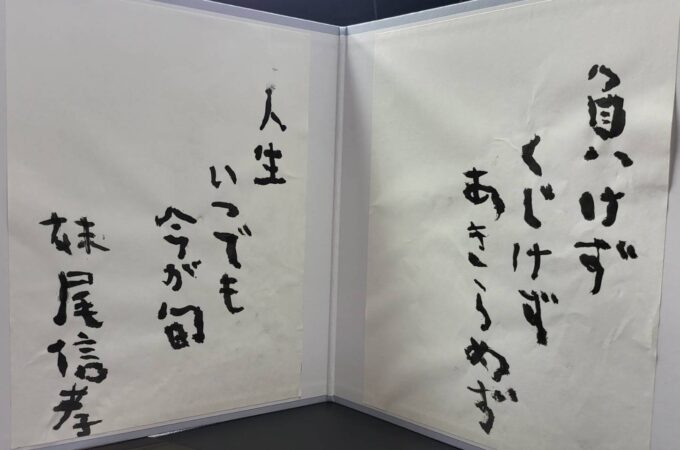 負けず
くじけず
あきらめず
人生
いつでも
今が旬
妹尾信孝